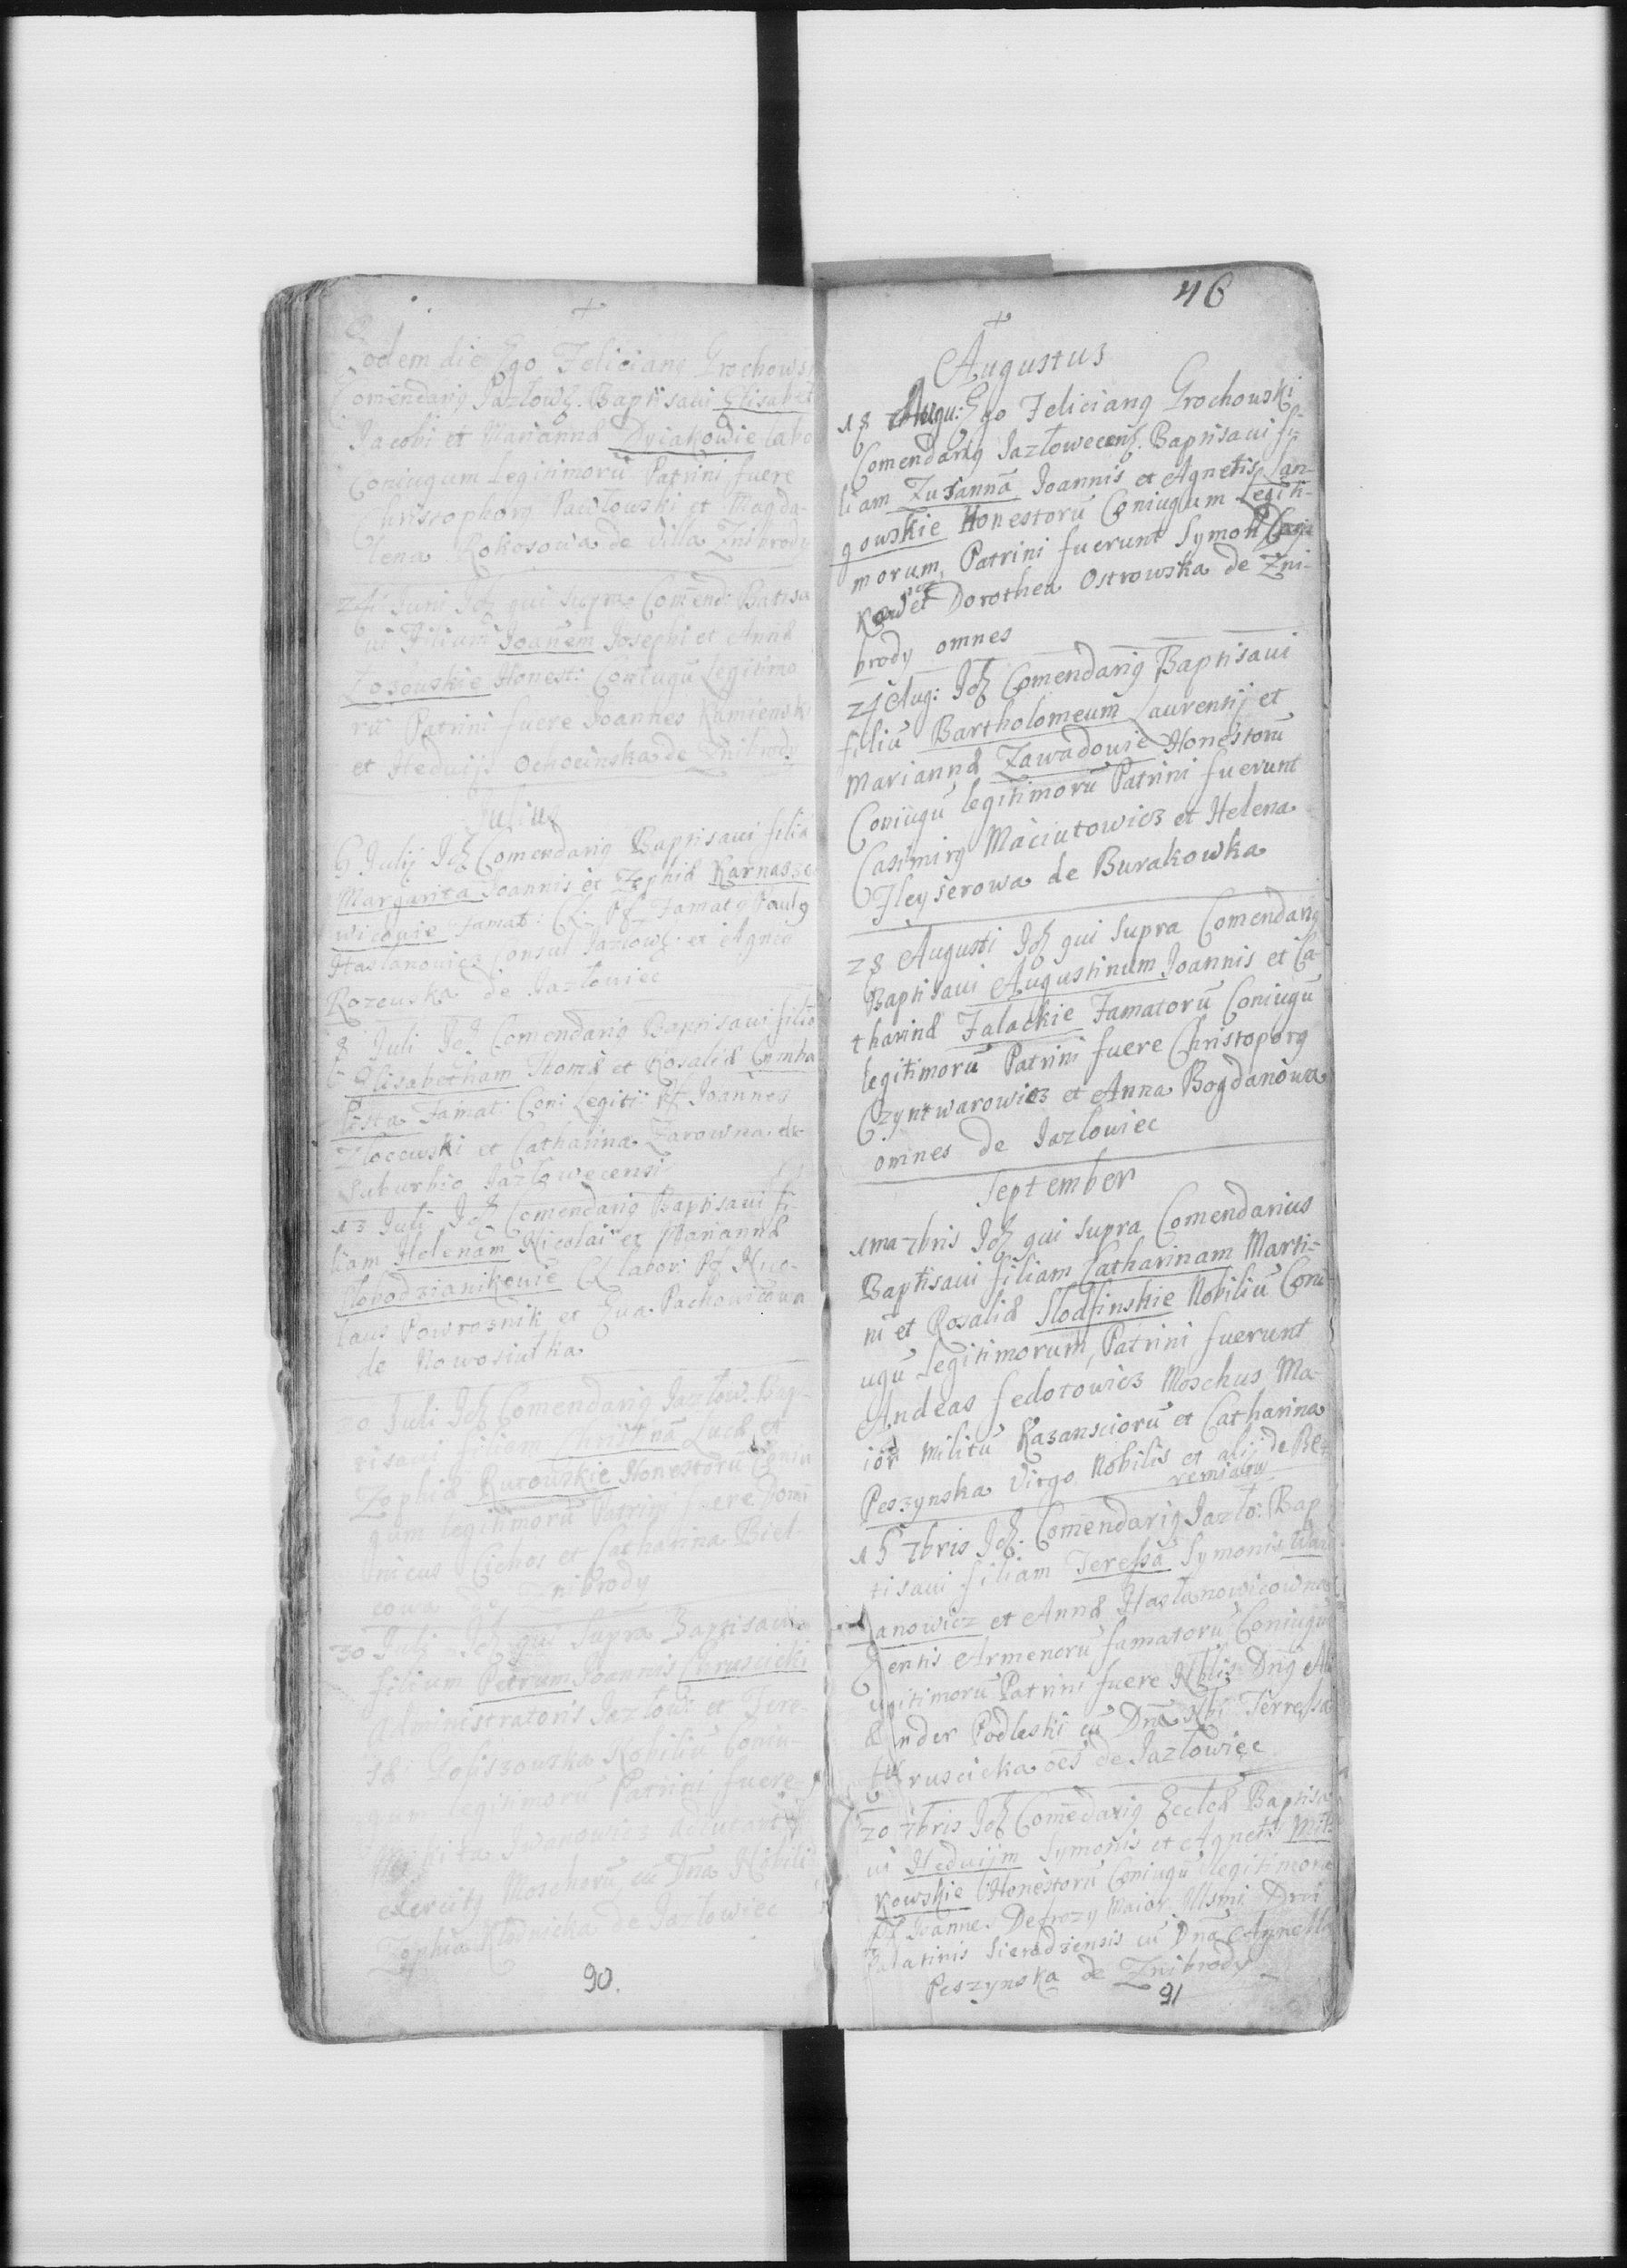 Eodem die Ego Feliciang Grochows
Comendarig Jazlowẽ. Baptisavi Elisabet
Jacobi et Mariannæ Dziakowie labo
Coniugum Legitimorũ Patrini fuere
Christophorg Pawlowski et Magda-
lena Kokosowa de Villa Znibrody
24 Juni Idẽ qui supra Comend: Batisa
vi Filium Joanẽm Josephi et Annæ
Lozowskie Honest: Coniugũ legitimo
rũ Patrini fuere Joannes Kamiensk
et Hedvijs Ochocinska de Znibrody
Julius
6 Julij Idẽ Comendarig Baptisavi filia
Margarita Joannis et Zophiæ Karnasze
wicowie Famat: CL: Pf Famatg Paulg
Haslanowicz Consul Jazlowẽ: et Agnes
Rozewska de Jazlowiec
8 Juli Idẽ Comendarig Baptisavi filiã
Elisabetham Thomæ et Rosaliæ Cymba
lista Famat: Coni Legiti: Pf Joannes
Zlocewski et Catharina Zarowna de
Suburbio Jazlowecensi
13 Juli Idẽ Comendarig Baptisavi fi-
liam Helenam Nicolai et Mariannæ
Slobodzianikowie CL labor: Pf Nico-
laus Powroznik et Eva Pachowicowa
de Nowosiulka
20 Juli Idẽ Comendarig Jazlow. Bap-
tisavi filiam Christinã Lucæ et
Zophiæ Rutowskie Honestorũ Coniu
gum legitimorũ Patrini fuere Domi
nicus Cichos et Catharina Biel-
cowa de Znibrody
30 Julij Idẽ qui Supra Baptisavi
filium Petrum Joannis Chruscicki
Administratoris Jazlow: et Tere-
sæ Nobiliũ Coniu-
gum legitimorũ Patrini fuere
Nikita Iwanowicz Adiutantg
exercitg Moschorũ cũ Dna Nobili
Zophia Klodnicka de Jazlowiec
90.
46
Augustus
18 Augu: Ego Feliciang Grochowski
Comendarig Jazlowecenẽ. Baptisavi fi-
liam Zuzannã Joannis et Agnetis Lan-
gowskie Honestorũ Coniugum Legiti-
morum, Patrini fuerunt Symon
et Dorothea Ostrowska de Zni-
brody omnes
24 Aug: Idẽ Comendarig Baptisavi
filiũ Bartholomeum Laurentij et
Mariannæ Zawadowie Honestorũ
Coniugũ legitimorũ Patrini fuerunt
Casimirg Maciutowicz et Helena
Fleyserowa de Burakowka
28 Augusti Idẽ qui Supra Comendarig
Baptisavi Augustinum Joannis et Ca-
tharinæ Falackie Famatorũ Coniugũ
legitimorũ Patrini fuere Christophorg
Czyntwarowicz et Anna Bogdanowa
omnes de Jazlowiec
September
1ma 7bris Idẽ qui Supra Comendarius
Baptisavi filiam Catharinam Marti-
ni et Rosaliæ Slodfinskie Nobiliũ Coni
ugũ Legitimorum, Patrini fuerunt
Andeas Fedotowicz Moschus Ma-
ior Militũ Kazansciorũ et Catharina
Peszynska Virgo Nobilis et alij de Re-
remiatu
15 7bris Idẽ Comendarig Jazlo: Bap
tisavi filiam Teressã Symonis War
tanowicz et Annæ Haslanowicowna
Gentis Armenorũ famatorũ Coniugũ
Legitimorũ Patrini fuere Nblis Dng Ale
xander Podleski cũ Dna Nbi Terressa
Chruscicka oẽs de Jazlowiec
20 7bris Idẽ Comẽdarig Eccleæ Baptisa
vi Hedvijm Symonis et Agnetis Mil-
kowskie Honestorũ Coniugũ legitimorũ
Pf Joannes Detrozy Maior Illsmi Dni
Palatinis Sieradziensis cũ Dna Agnella
Peszynska de Znibrody
91